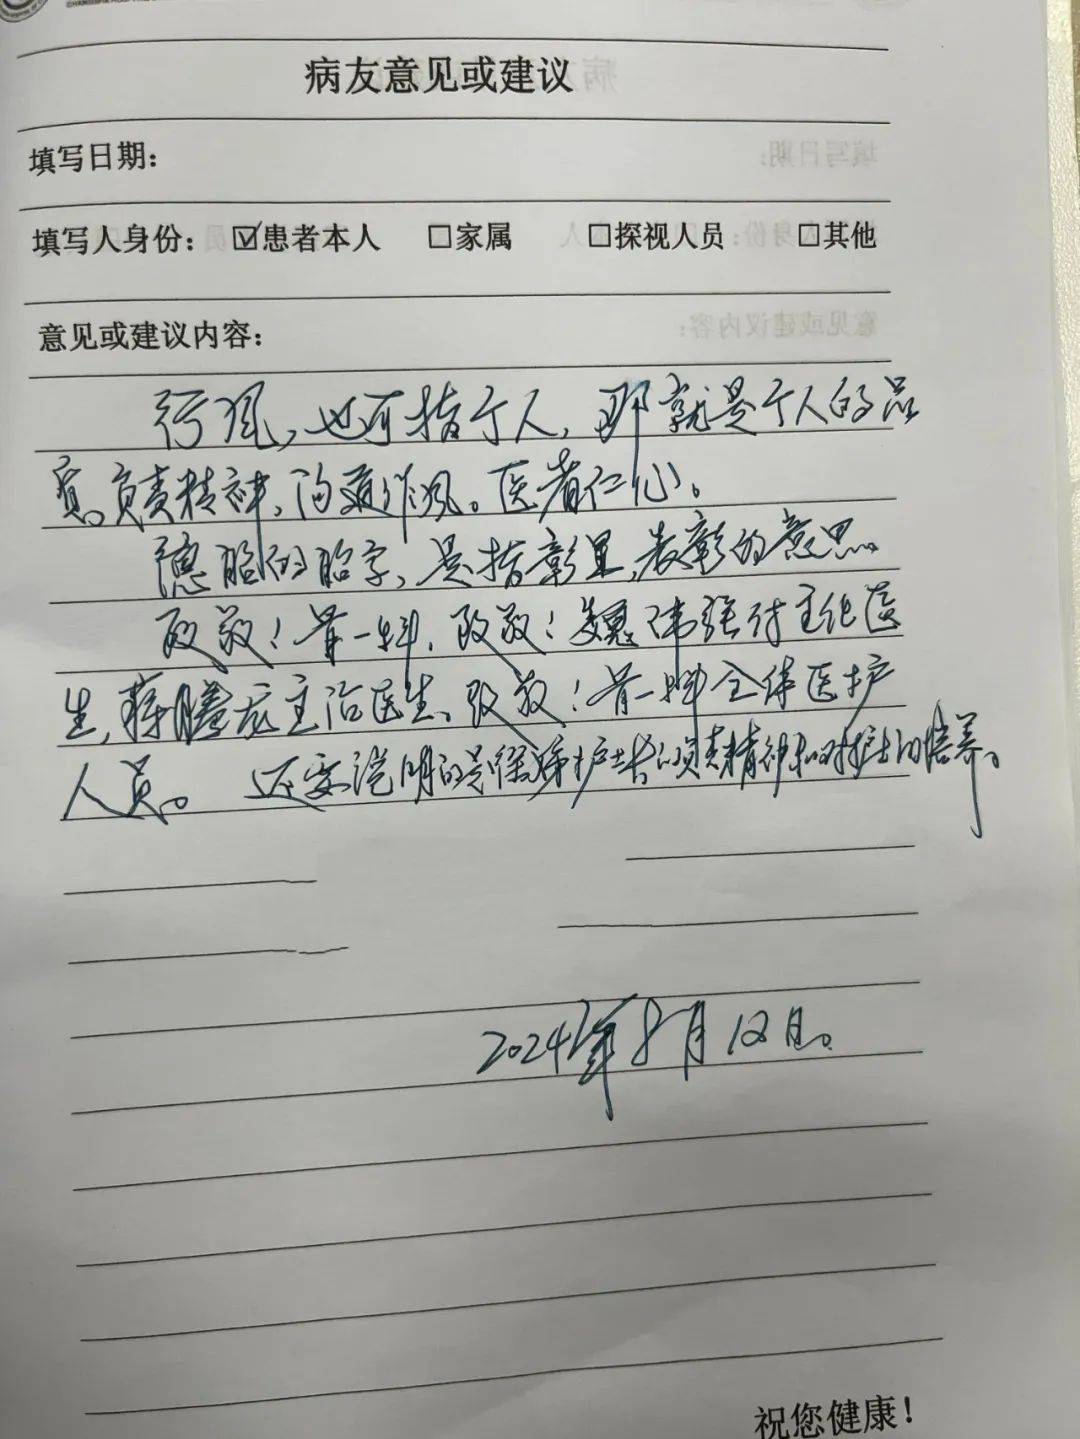 病友意见或建议
填写日期：
填写人身份：☑患者本人 □家属 □探视人员 □其他
意见或建议内容：
行风，也可指个人，那就是个人的品
质。负责精神、沟通作风。医者仁心。
德昭的昭字，是指彰显，表彰的意思。
致敬！骨一科，致敬！魏伟强付主任医
生，蒋腾龙主治医生、致敬！骨一科全体医护
人员。还要说明的是护士长的负责精神和对护士的培养。
2024年8月12日。
祝您健康！